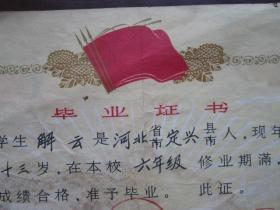 毕业证书
学生 解云 是河北省市定兴县市人，现年
十三岁，在本校 六年级 修业期满，
成绩合格，准予毕业。 此证。